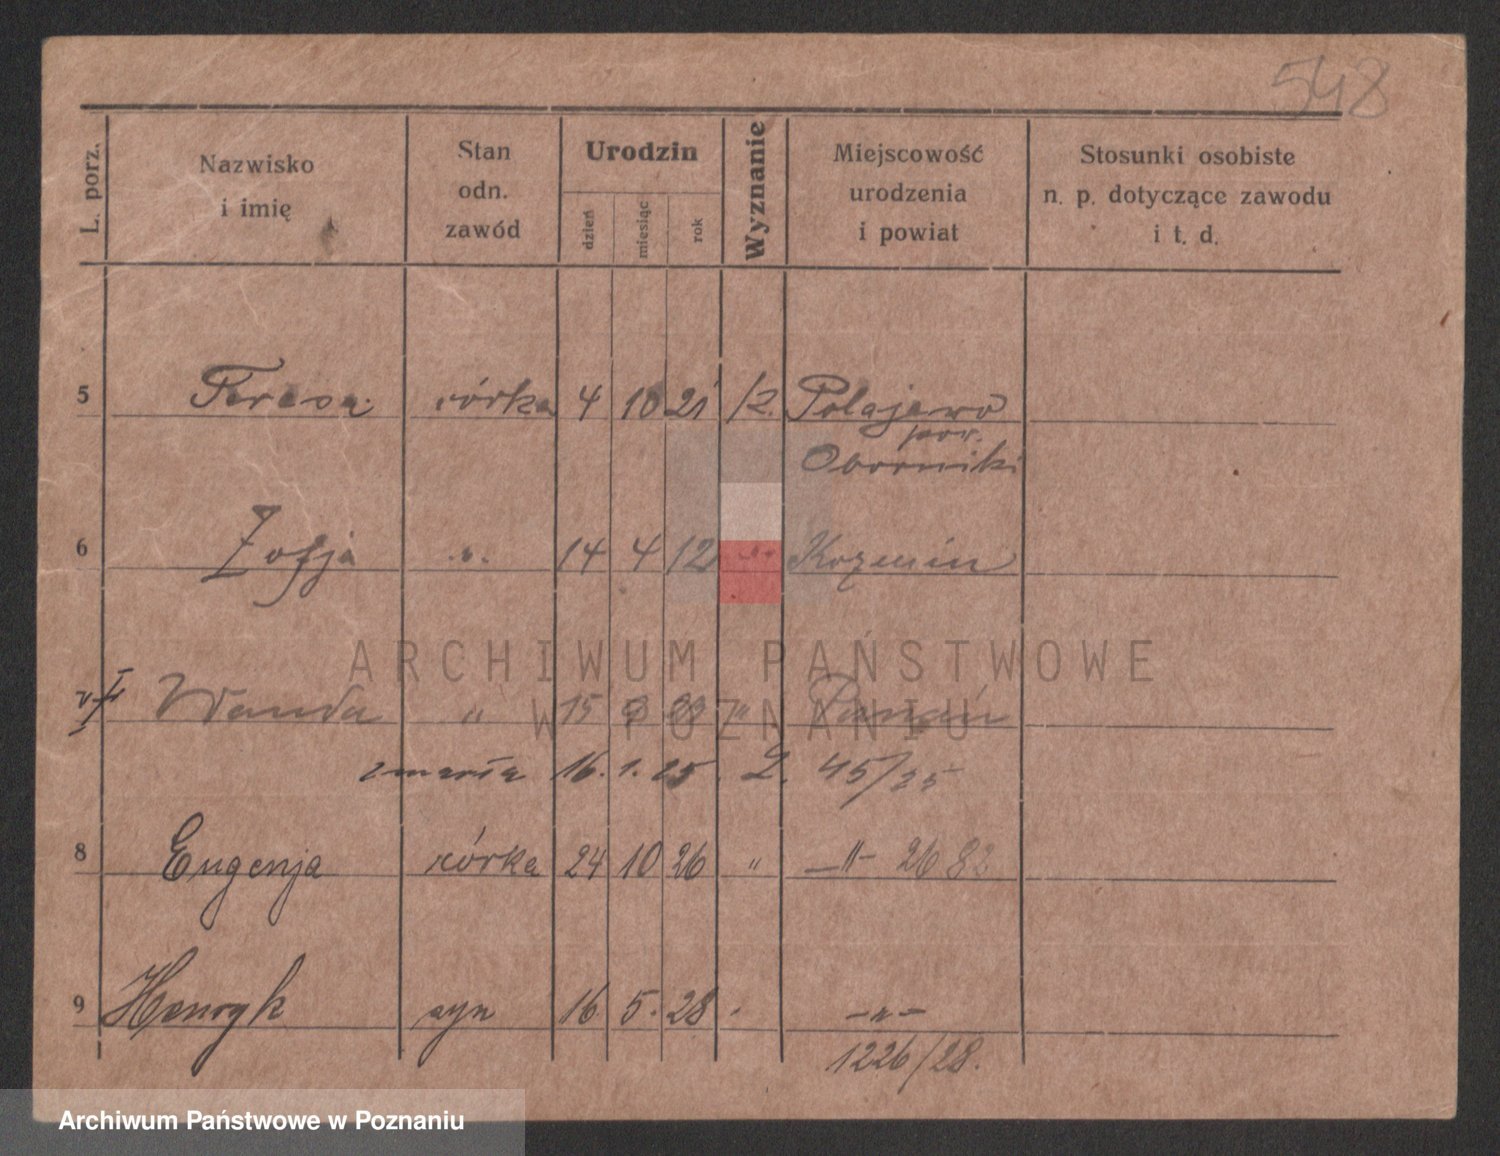 548
L. porz.
Nazwisko i imię
Stan odn. zawód
Urodzin
dzień miesiąc rok
Wyznanie
Miejscowość urodzenia i powiat
Stosunki osobiste n. p. dotyczące zawodu i t. d.
5 Teresa córka 4 10 21 R. Połajewo
pow.
Oborniki
6 Zofja " 14 4 12 " Kozmin
Wanda " 15 " Poznań
zmarła 16. 1. 25. Z. 45/25
8 Eugenja córka 24 10 26 " —"— 26 82
9 Henryk syn 16 5. 28 —"—
1226/28.
ARCHIWUM PAŃSTWOWE
W POZNANIU
Archiwum Państwowe w Poznaniu